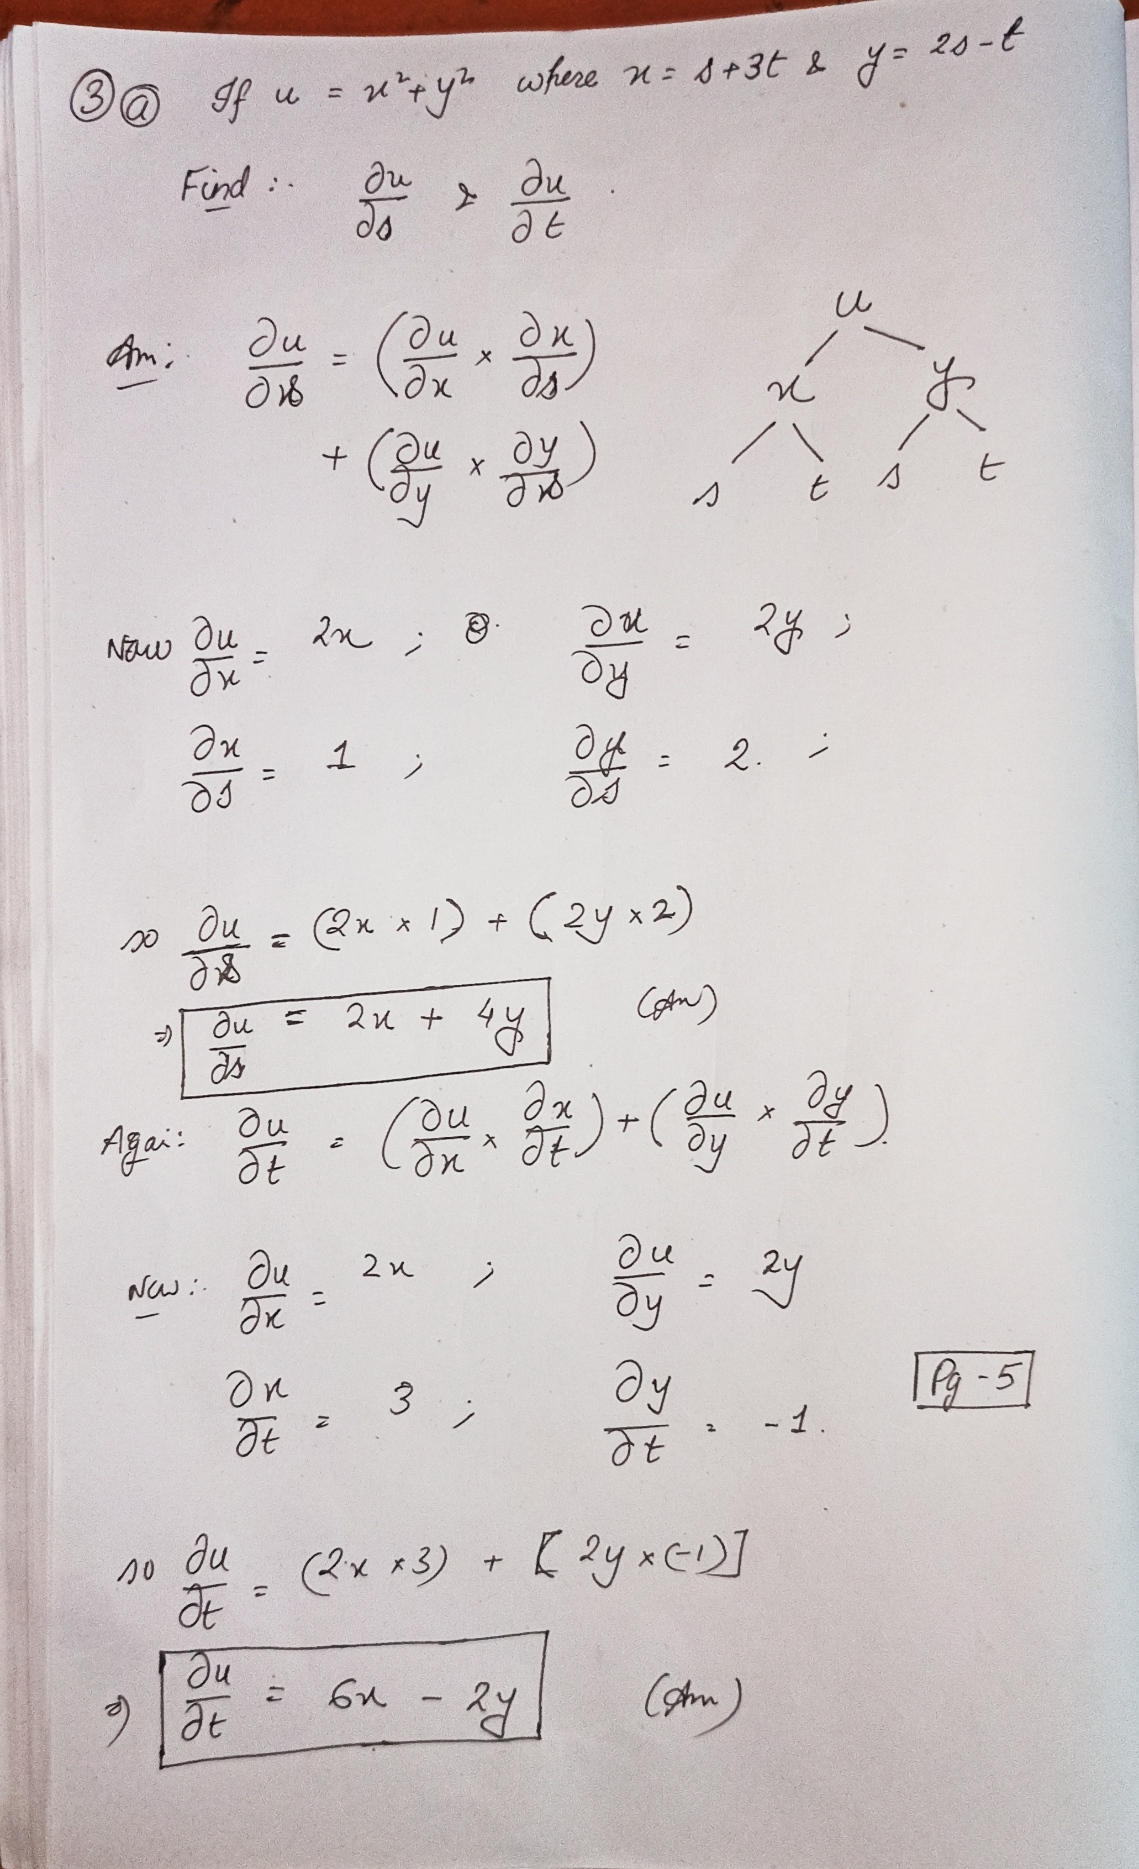 ③ⓐ If u = x²+y² where x = s+3t & y = 2s-t
Find :. ∂u/∂s & ∂u/∂t .
Ans: ∂u/∂s = (∂u/∂x × ∂x/∂s)
+ (∂u/∂y × ∂y/∂s)
u
x y
s t s t
Now ∂u/∂x = 2x ; ∂u/∂y = 2y ;
∂x/∂s = 1 ; ∂y/∂s = 2. ;
so ∂u/∂s = (2x × 1) + (2y × 2)
⇒ ∂u/∂s = 2x + 4y (Ans)
Agai: ∂u/∂t = (∂u/∂x × ∂x/∂t) + (∂u/∂y × ∂y/∂t).
Now :. ∂u/∂x = 2x ; ∂u/∂y = 2y
∂x/∂t = 3 ; ∂y/∂t = -1.
Pg-5
so ∂u/∂t = (2x × 3) + [2y × (-1)]
⇒ ∂u/∂t = 6x - 2y (Ans)